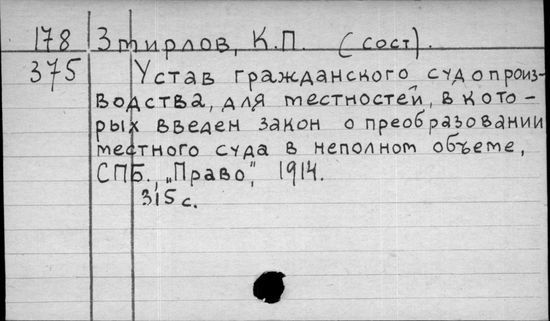 178 Змирлов, К.П. (сост).
375 Устав гражданского судопроиз-
водства, для местностей, в кото-
рых введен закон о преобразовании
местного суда в неполном объеме,
СПБ., „Право", 1914.
315 с.